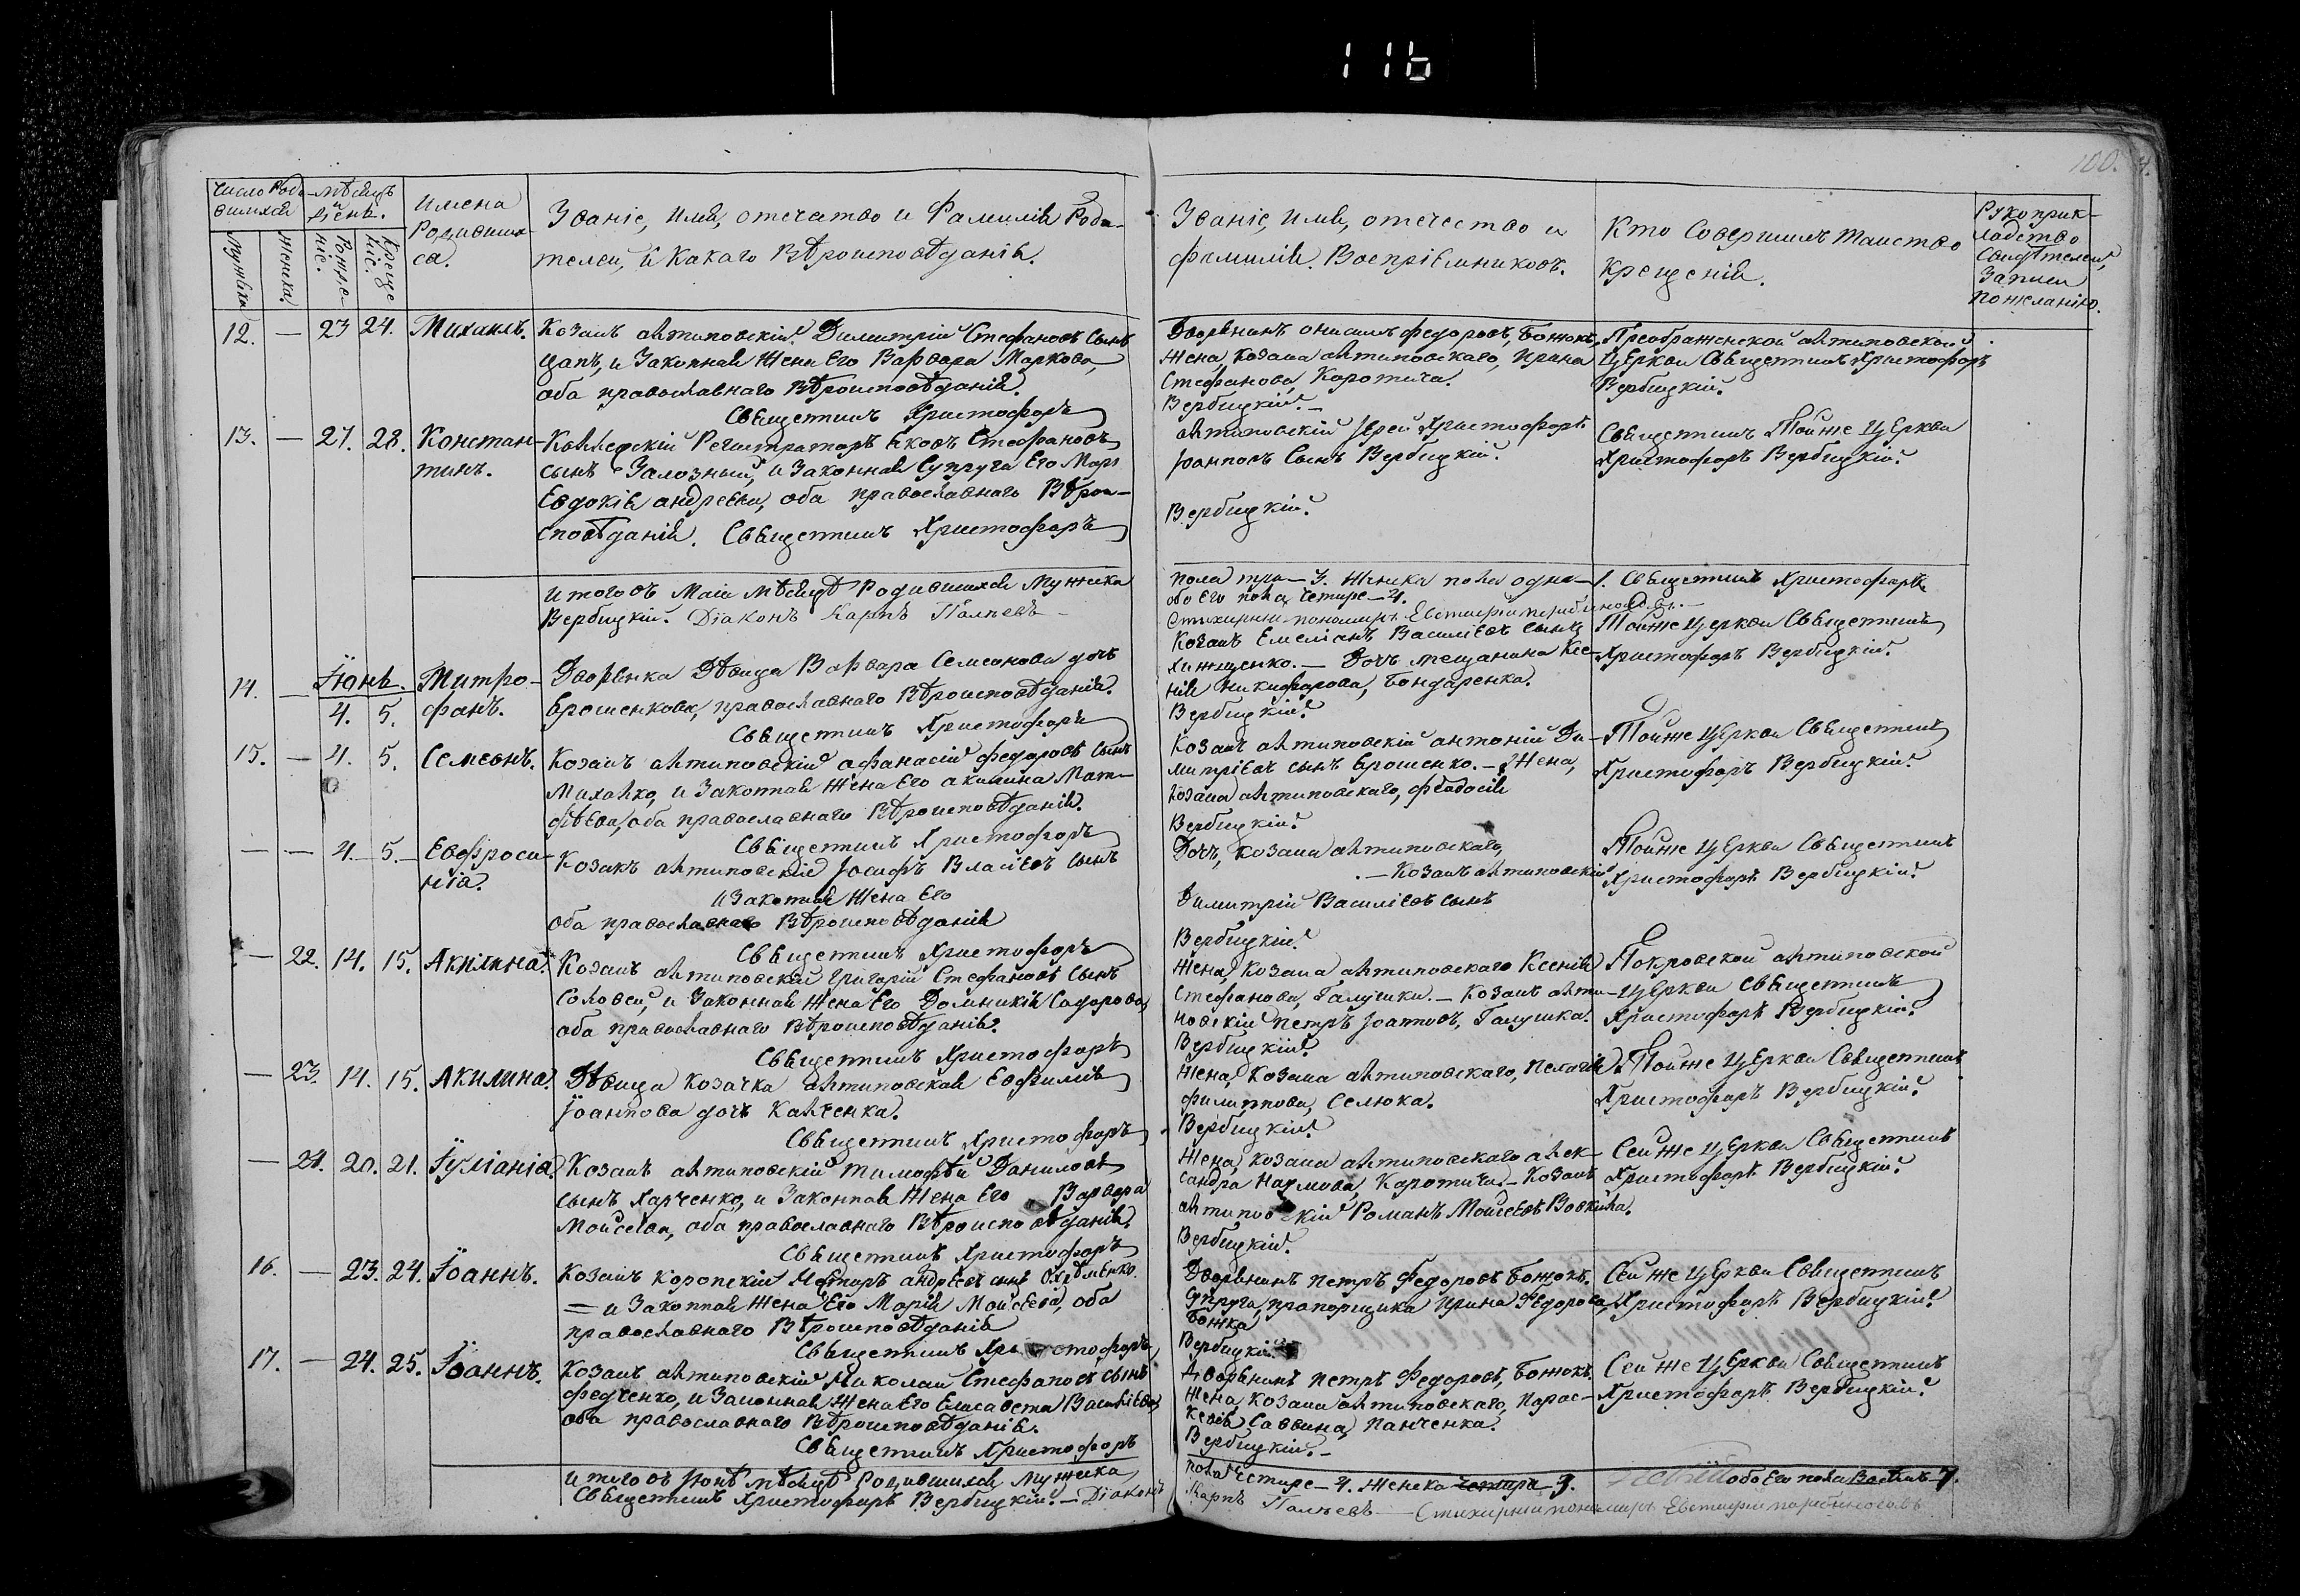 116
100.
Число Родившихся
Мѣсяцъ и День.
Имена Родивших-
ся.
Званіе, Имя, отечество и Фамилія Роди-
телей, и Какаго Вѣроисповѣданія.
Званіе, Имя, отечество и
фамилія Воспріемниковъ.
Кто Совершилъ Таинство
Крещенія.
Рукоприк-
ладство
Свидѣтелей
Записи
по желанію.
Мужеска
Женска.
Рожде-
ніе.
Креще
ніе.
12. — 23 24. Михаилъ.
Козакъ антиповскій Димитрій Стефановъ Сынъ
Цапъ, и Законная Жена Его Варвара Маркова,
оба православнаго Вѣроисповѣданія.
Священникъ Христофоръ
Дворянинъ Федоровъ, Божокъ,
Жена, Козака антиповскаго, Ирина
Стефанова, Коротича.
Вербицкій. —
Преображенской антиповской
Церкви Священникъ Христофоръ
Вербицкій.
13. — 27. 28. Констан-
тинъ.
Регистраторъ Яковъ Стефановъ
сынъ Залозный, и Законная Супруга Его
Евдокія андреева, оба православнаго Вѣрои-
сповѣданія. Священникъ Христофоръ
антиповскій Іерей Христофоръ
Іоанновъ Сынъ Вербицкій.
Вербицкій.
Священникъ Тойже Церкви
Христофоръ Вербицкій.
Итого въ Маіи мѣсяцѣ Родившихся Мужеска
Вербицкій. Діаконъ Карпъ
пола три — 3. Женска пола одна — 1. Священникъ Христофоръ
обоего пола четыре — 4.
пономарь Евстафій
14. — Іюнь. 4. 5. Митро-
фанъ.
Дворянка Дѣвица Варвара Семеонова дочь
Ярошенкова, православнаго Вѣроисповѣданія.
Священникъ Христофоръ
Козакъ Емеліанъ Василіевъ сынъ
Хижненко. — Дочь мещанина Ксе-
нія Никифорова, Бондаренка.
Вербицкій.
Тойже церкви Священникъ
Христофоръ Вербицкій.
15. — 4. 5. Семеонъ.
Козакъ антиповскій афанасій федоровъ Сынъ
Михалко, и Законная Жена Его акилина Мат-
фѣева, оба православнаго Вѣроисповѣданія.
Священникъ Христофоръ
Козакъ антиповскій антоній Ди-
митріевъ сынъ Ярошенко. — Жена,
Козака антиповскаго, феодосія
Вербицкій.
Тойже Церкви Священникъ
Христофоръ Вербицкій.
— — 4. 5. — Евфроси-
нія.
Козакъ антиповскій Іосифъ Власіевъ сынъ
и Законная Жена Его
оба православнаго Вѣроисповѣданія
Священникъ Христофоръ
Дочь, Козака антиповскаго,
. — Козакъ антиповскій
Димитрій Василіевъ сынъ
Вербицкій.
Тойже Церкви Священникъ
Христофоръ Вербицкій.
— 22. 14. 15. Акилина.
Козакъ антиповскій Григорій Стефановъ Сынъ
Соловей, и Законная Жена Его Домникія Сидорова,
оба православнаго Вѣроисповѣданія.
Священникъ Христофоръ
Жена, Козака, антиповскаго Ксенія
Стефанова, Галушки. — Козакъ анти-
повскій Петръ Іоанновъ, Галушка.
Вербицкій.
Покровской антиповской
Церкви Священникъ
Христофоръ Вербицкій.
— 23. 14. 15. Акилина.
Дѣвица Козачка антиповская Евфимія
Іоаннова дочь Калченка.
Священникъ Христофоръ
Жена, Козака антиповскаго, Пелагія
филиппова, Селюка.
Вербицкій.
Тойже Церкви Священникъ
Христофоръ Вербицкій.
— 24. 20. 21. Іуліанія.
Козакъ антиповскій Тимофѣй Даниловъ
сынъ Харченко, и Законная Жена Его Варвара
Мойсеева, оба православнаго Вѣроисповѣданія.
Священникъ Христофоръ
Жена, Козака антиповскаго алек-
сандра Наумова, Коротича. — Козакъ
антиповскій Романъ Мойсеевъ
Вербицкій.
Сей же Церкви Священникъ
Христофоръ Вербицкій.
16. — 23. 24. Іоаннъ.
Козакъ Коропскій Несторъ андреевъ сынъ
= и Законная Жена Его Марія Мойсеева, оба
православнаго Вѣроисповѣданія
Священникъ Христофоръ,
Дворянинъ Петръ Федоровъ Божокъ.
Супруга, прапорщика Ирина Федорова,
Божка
Вербицкій
Сей же Церкви Священникъ
Христофоръ Вербицкій.
17. — 24. 25. Іоаннъ.
Козакъ антиповскій Николай Стефановъ сынъ
Федченко, и Законная Жена Его Елисавета Василіева,
оба православнаго Вѣроисповѣданія.
Священникъ Христофоръ
Дворянинъ Петръ Федоровъ, Божокъ.
Жена Козака антиповскаго, Парас-
кевія Саввина, Панченка.
Вербицкій. —
Сей же Церкви Священникъ
Христофоръ Вербицкій.
Итого въ Іюнѣ мѣсяцѣ Родившихся Мужеска
Священникъ Христофоръ Вербицкій. — Діаконъ
пола Четыре — 4. Женска четыре — 3. обоего пола 7.
Карпъ — пономарь Евстафій